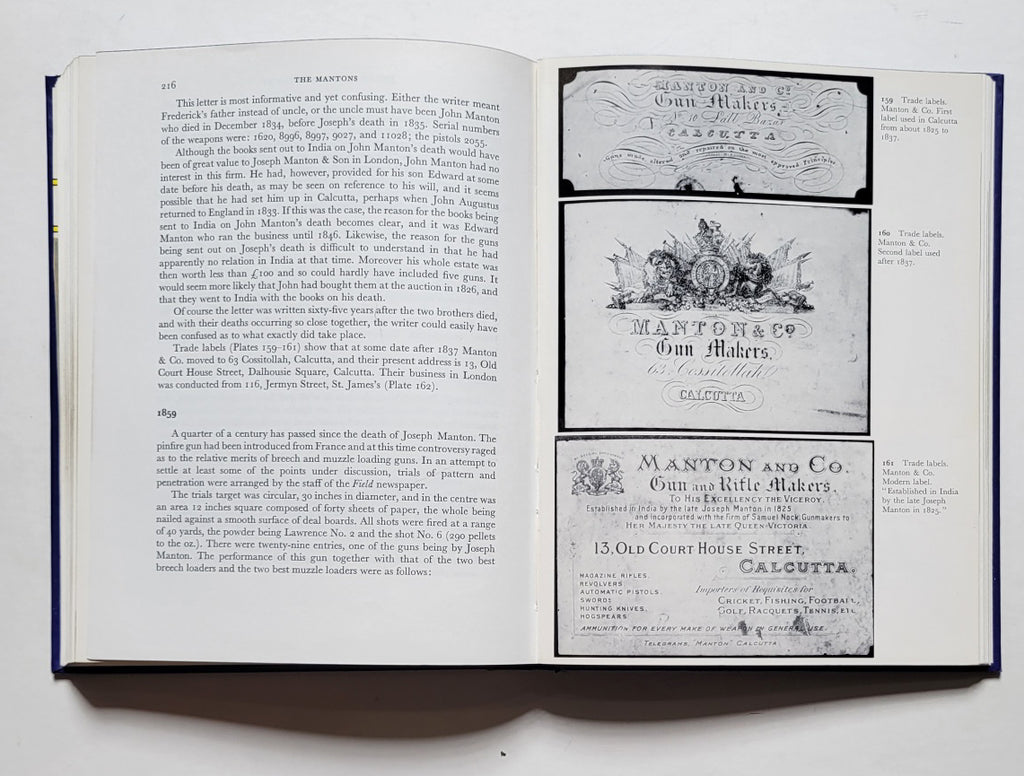 216
THE MANTONS
This letter is most informative and yet confusing. Either the writer meant
Frederick's father instead of uncle, or the uncle must have been John Manton
who died in December 1834, before Joseph's death in 1835. Serial numbers
of the weapons were: 1620, 8996, 8997, 9027, and 11028; the pistols 2055.
Although the books sent out to India on John Manton's death would have
been of great value to Joseph Manton & Son in London, John Manton had no
interest in this firm. He had, however, provided for his son Edward at some
date before his death, as may be seen on reference to his will, and it seems
possible that he had set him up in Calcutta, perhaps when John Augustus
returned to England in 1833. If this was the case, the reason for the books being
sent to India on John Manton's death becomes clear, and it was Edward
Manton who ran the business until 1846. Likewise, the reason for the guns
being sent out on Joseph's death is difficult to understand in that he had
apparently no relation in India at that time. Moreover his whole estate was
then worth less than £100 and so could hardly have included five guns. It
would seem more likely that John had bought them at the auction in 1826, and
that they went to India with the books on his death.
Of course the letter was written sixty-five years after the two brothers died,
and with their deaths occurring so close together, the writer could easily have
been confused as to what exactly did take place.
Trade labels (Plates 159–161) show that at some date after 1837 Manton
& Co. moved to 63 Cossitollah, Calcutta, and their present address is 13, Old
Court House Street, Dalhousie Square, Calcutta. Their business in London
was conducted from 116, Jermyn Street, St. James's (Plate 162).
1859
A quarter of a century has passed since the death of Joseph Manton. The
pinfire gun had been introduced from France and at this time controversy raged
as to the relative merits of breech and muzzle loading guns. In an attempt to
settle at least some of the points under discussion, trials of pattern and
penetration were arranged by the staff of the Field newspaper.
The trials target was circular, 30 inches in diameter, and in the centre was
an area 12 inches square composed of forty sheets of paper, the whole being
nailed against a smooth surface of deal boards. All shots were fired at a range
of 40 yards, the powder being Lawrence No. 2 and the shot No. 6 (290 pellets
to the oz.). There were twenty-nine entries, one of the guns being by Joseph
Manton. The performance of this gun together with that of the two best
breech loaders and the two best muzzle loaders were as follows:
MANTON AND Co
Gun Makers
No 10 Lall Bazar
CALCUTTA
Guns made, altered and repaired on the most approved Principles
159 Trade labels.
Manton & Co. First
label used in Calcutta
from about 1825 to
1837.
MANTON & Co
Gun Makers,
63, Cossitollah,
CALCUTTA
160 Trade labels.
Manton & Co.
Second label used
after 1837.
MANTON AND CO.
Gun and Rifle Makers,
TO HIS EXCELLENCY THE VICEROY,
Established in India by the late Joseph Manton in 1825
and incorporated with the Firm of Samuel Nock, Gunmakers to
HER MAJESTY THE LATE QUEEN VICTORIA.
13, OLD COURT HOUSE STREET,
CALCUTTA.
MAGAZINE RIFLES.
REVOLVERS.
AUTOMATIC PISTOLS.
SWORDS.
HUNTING KNIVES.
HOGSPEARS
Importers of Requisites for
CRICKET, FISHING, FOOTBALL,
GOLF, RACQUETS, TENNIS, ETC.
AMMUNITION FOR EVERY MAKE OF WEAPON IN GENERAL USE.
TELEGRAMS, "MANTON" CALCUTTA
161 Trade labels.
Manton & Co.
Modern label.
"Established in India
by the late Joseph
Manton in 1825."